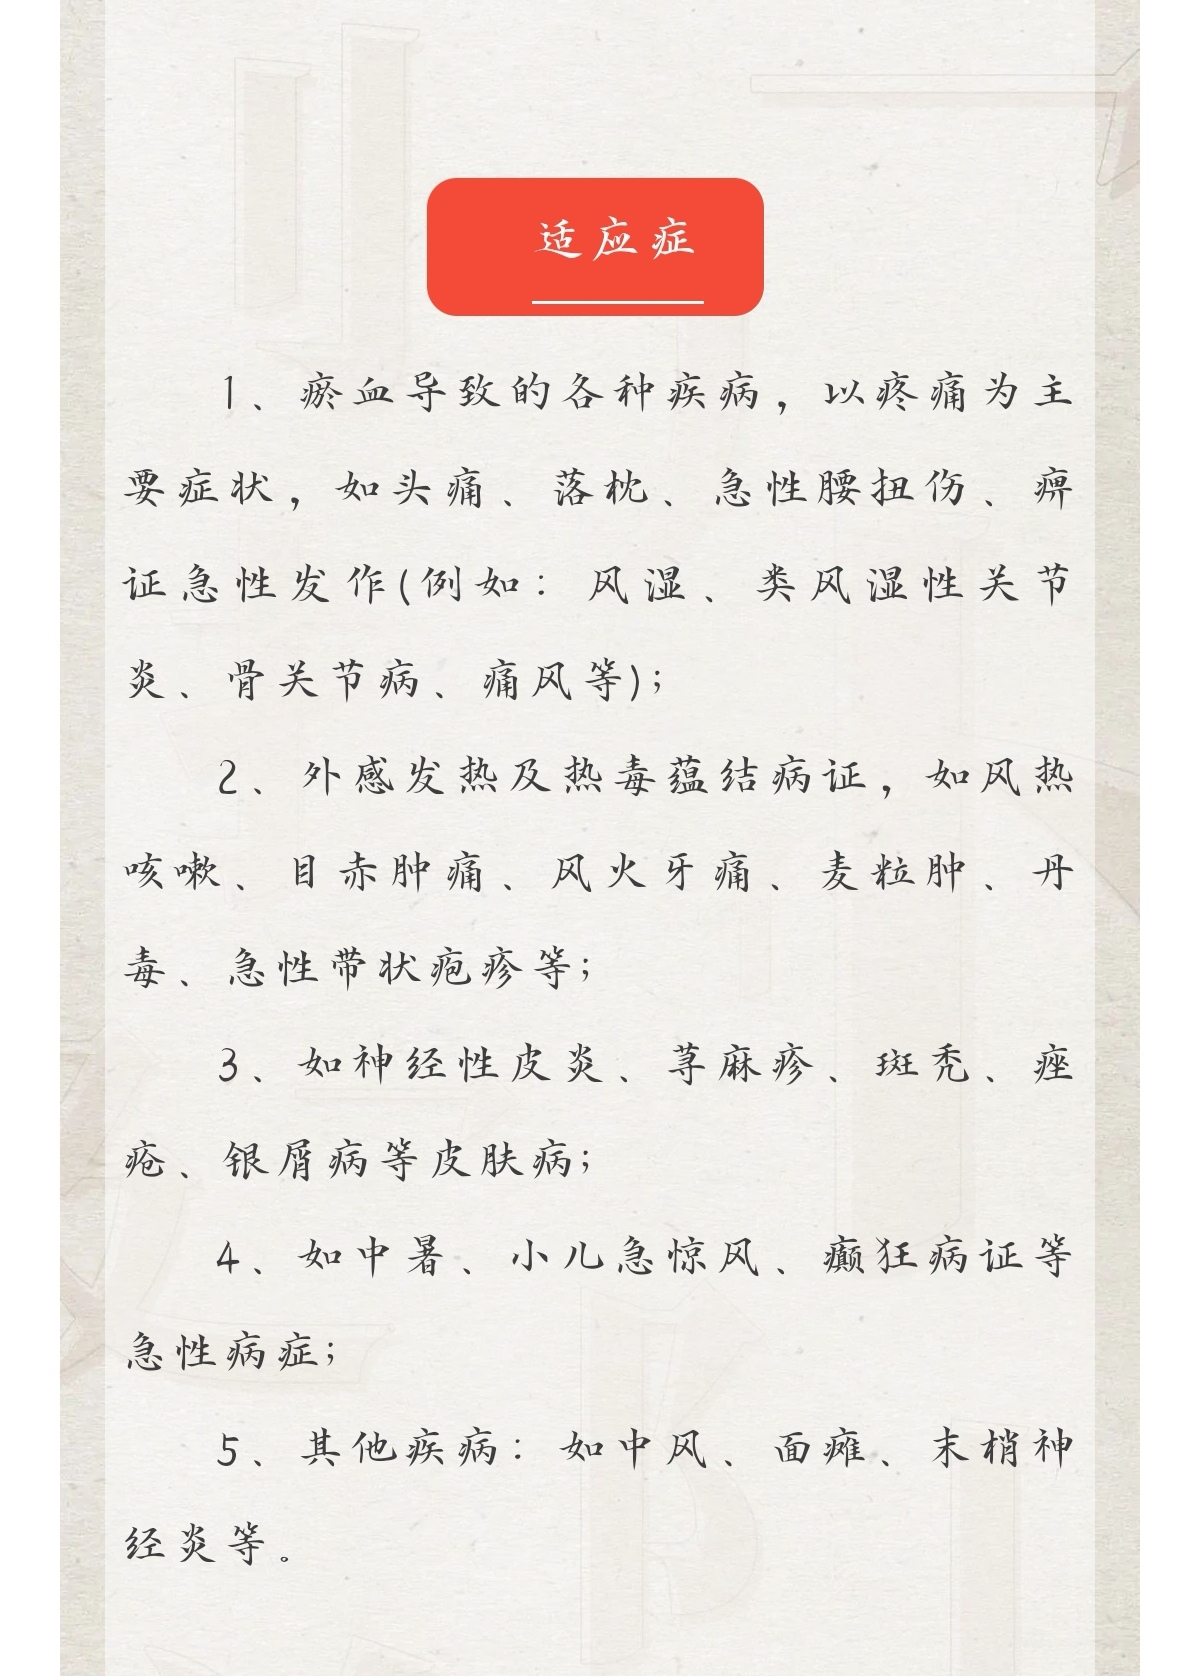 适应症
1、瘀血导致的各种疾病，以疼痛为主
要症状，如头痛、落枕、急性腰扭伤、痹
证急性发作(例如：风湿、类风湿性关节
炎、骨关节病、痛风等)；
2、外感发热及热毒蕴结病证，如风热
咳嗽、目赤肿痛、风火牙痛、麦粒肿、丹
毒、急性带状疱疹等；
3、如神经性皮炎、荨麻疹、斑秃、痤
疮、银屑病等皮肤病；
4、如中暑、小儿急惊风、癫狂病证等
急性病症；
5、其他疾病：如中风、面瘫、末梢神
经炎等。